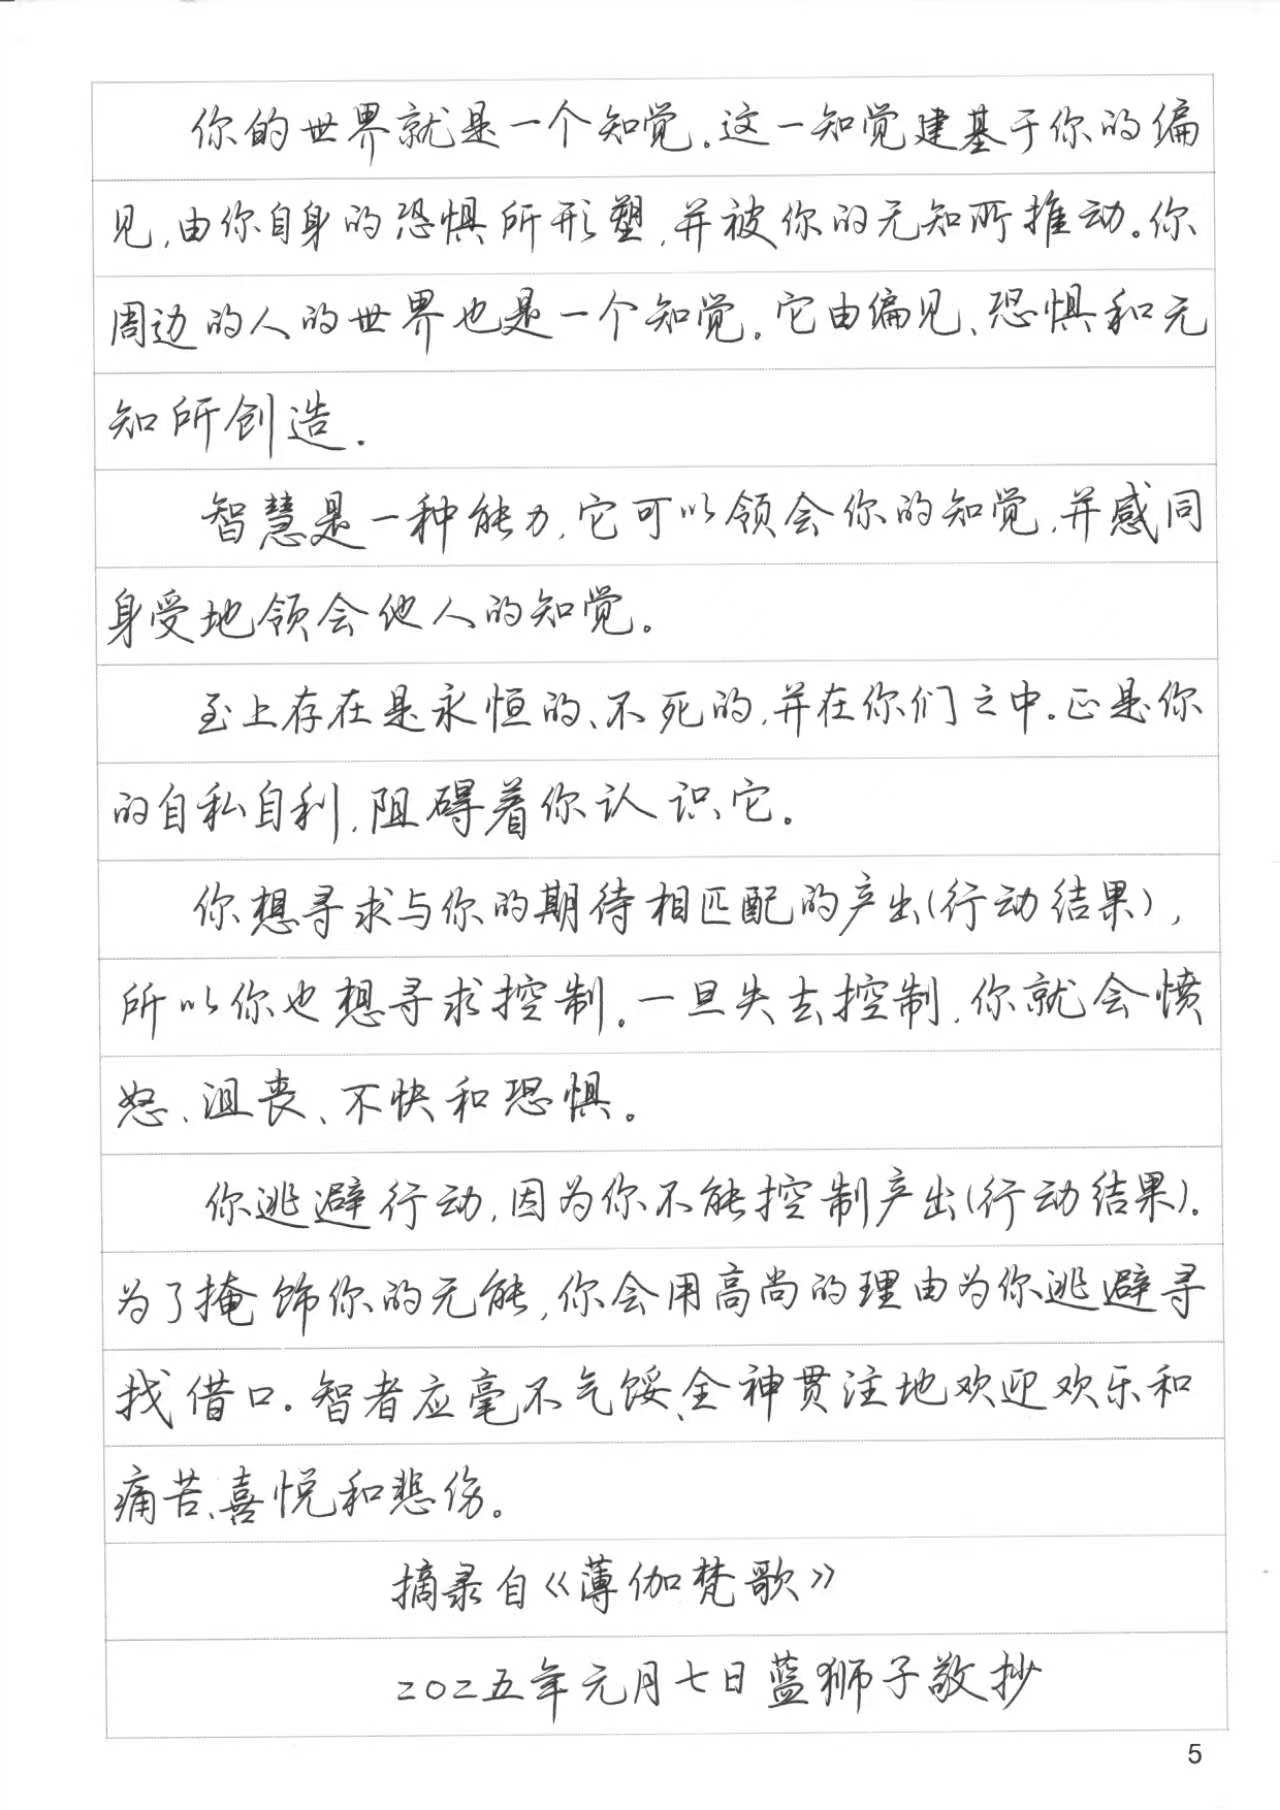 你的世界就是一个知觉。这一知觉建基于你的偏
见,由你自身的恐惧所形塑,并被你的无知所推动。你
周边的人的世界也是一个知觉。它由偏见、恐惧和无
知所创造.
智慧是一种能力,它可以领会你的知觉,并感同
身受地领会他人的知觉。
至上存在是永恒的、不死的,并在你们之中。正是你
的自私自利,阻碍着你认识它。
你想寻求与你的期待相匹配的产出(行动结果),
所以你也想寻求控制。一旦失去控制,你就会愤
怒、沮丧、不快和恐惧。
你逃避行动,因为你不能控制产出(行动结果)。
为了掩饰你的无能,你会用高尚的理由为你逃避寻
找借口。智者应毫不气馁、全神贯注地欢迎欢乐和
痛苦、喜悦和悲伤。
摘录自《薄伽梵歌》
2025五年元月七日蓝狮子敬抄
5